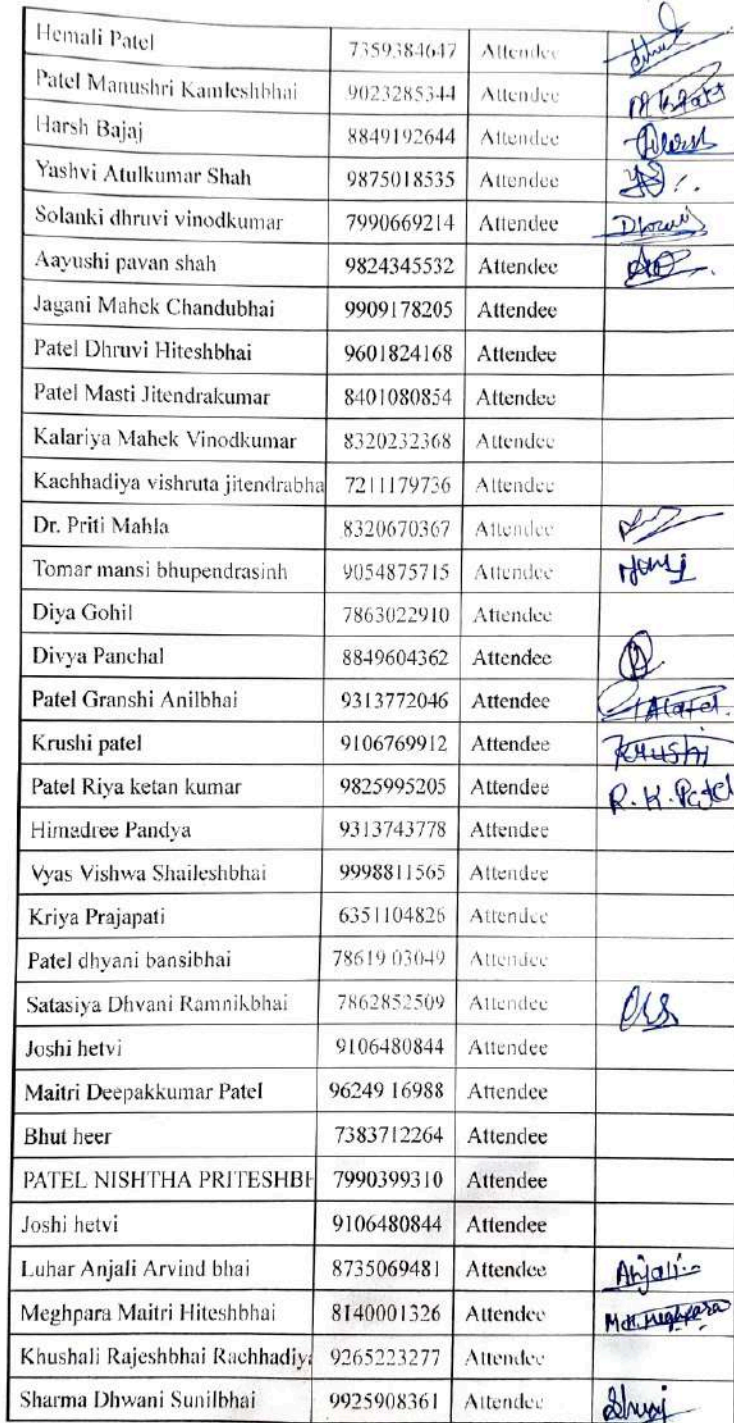 Hemali Patel 7359384647 Attendee
Patel Manushri Kamleshbhai 9023285344 Attendee
Harsh Bajaj 8849192644 Attendee
Yashvi Atulkumar Shah 9875018535 Attendee
Solanki dhruvi vinodkumar 7990669214 Attendee
Aayushi pavan shah 9824345532 Attendee
Jagani Mahek Chandubhai 9909178205 Attendee
Patel Dhruvi Hiteshbhai 9601824168 Attendee
Patel Masti Jitendrakumar 8401080854 Attendee
Kalariya Mahek Vinodkumar 8320232368 Attendee
Kachhadiya vishruta jitendrabha 7211179736 Attendee
Dr. Priti Mahla 8320670367 Attendee
Tomar mansi bhupendrasinh 9054875715 Attendee
Diya Gohil 7863022910 Attendee
Divya Panchal 8849604362 Attendee
Patel Granshi Anilbhai 9313772046 Attendee
Krushi patel 9106769912 Attendee Krushi
Patel Riya ketan kumar 9825995205 Attendee R. K. Patel
Himadree Pandya 9313743778 Attendee
Vyas Vishwa Shaileshbhai 9998811565 Attendee
Kriya Prajapati 6351104826 Attendee
Patel dhyani bansibhai 78619 03049 Attendee
Satasiya Dhvani Ramnikbhai 7862852509 Attendee
Joshi hetvi 9106480844 Attendee
Maitri Deepakkumar Patel 96249 16988 Attendee
Bhut heer 7383712264 Attendee
PATEL NISHTHA PRITESHBH 7990399310 Attendee
Joshi hetvi 9106480844 Attendee
Luhar Anjali Arvind bhai 8735069481 Attendee Anjali
Meghpara Maitri Hiteshbhai 8140001326 Attendee M.H. Meghpara
Khushali Rajeshbhai Rachhadiya 9265223277 Attendee
Sharma Dhwani Sunilbhai 9925908361 Attendee